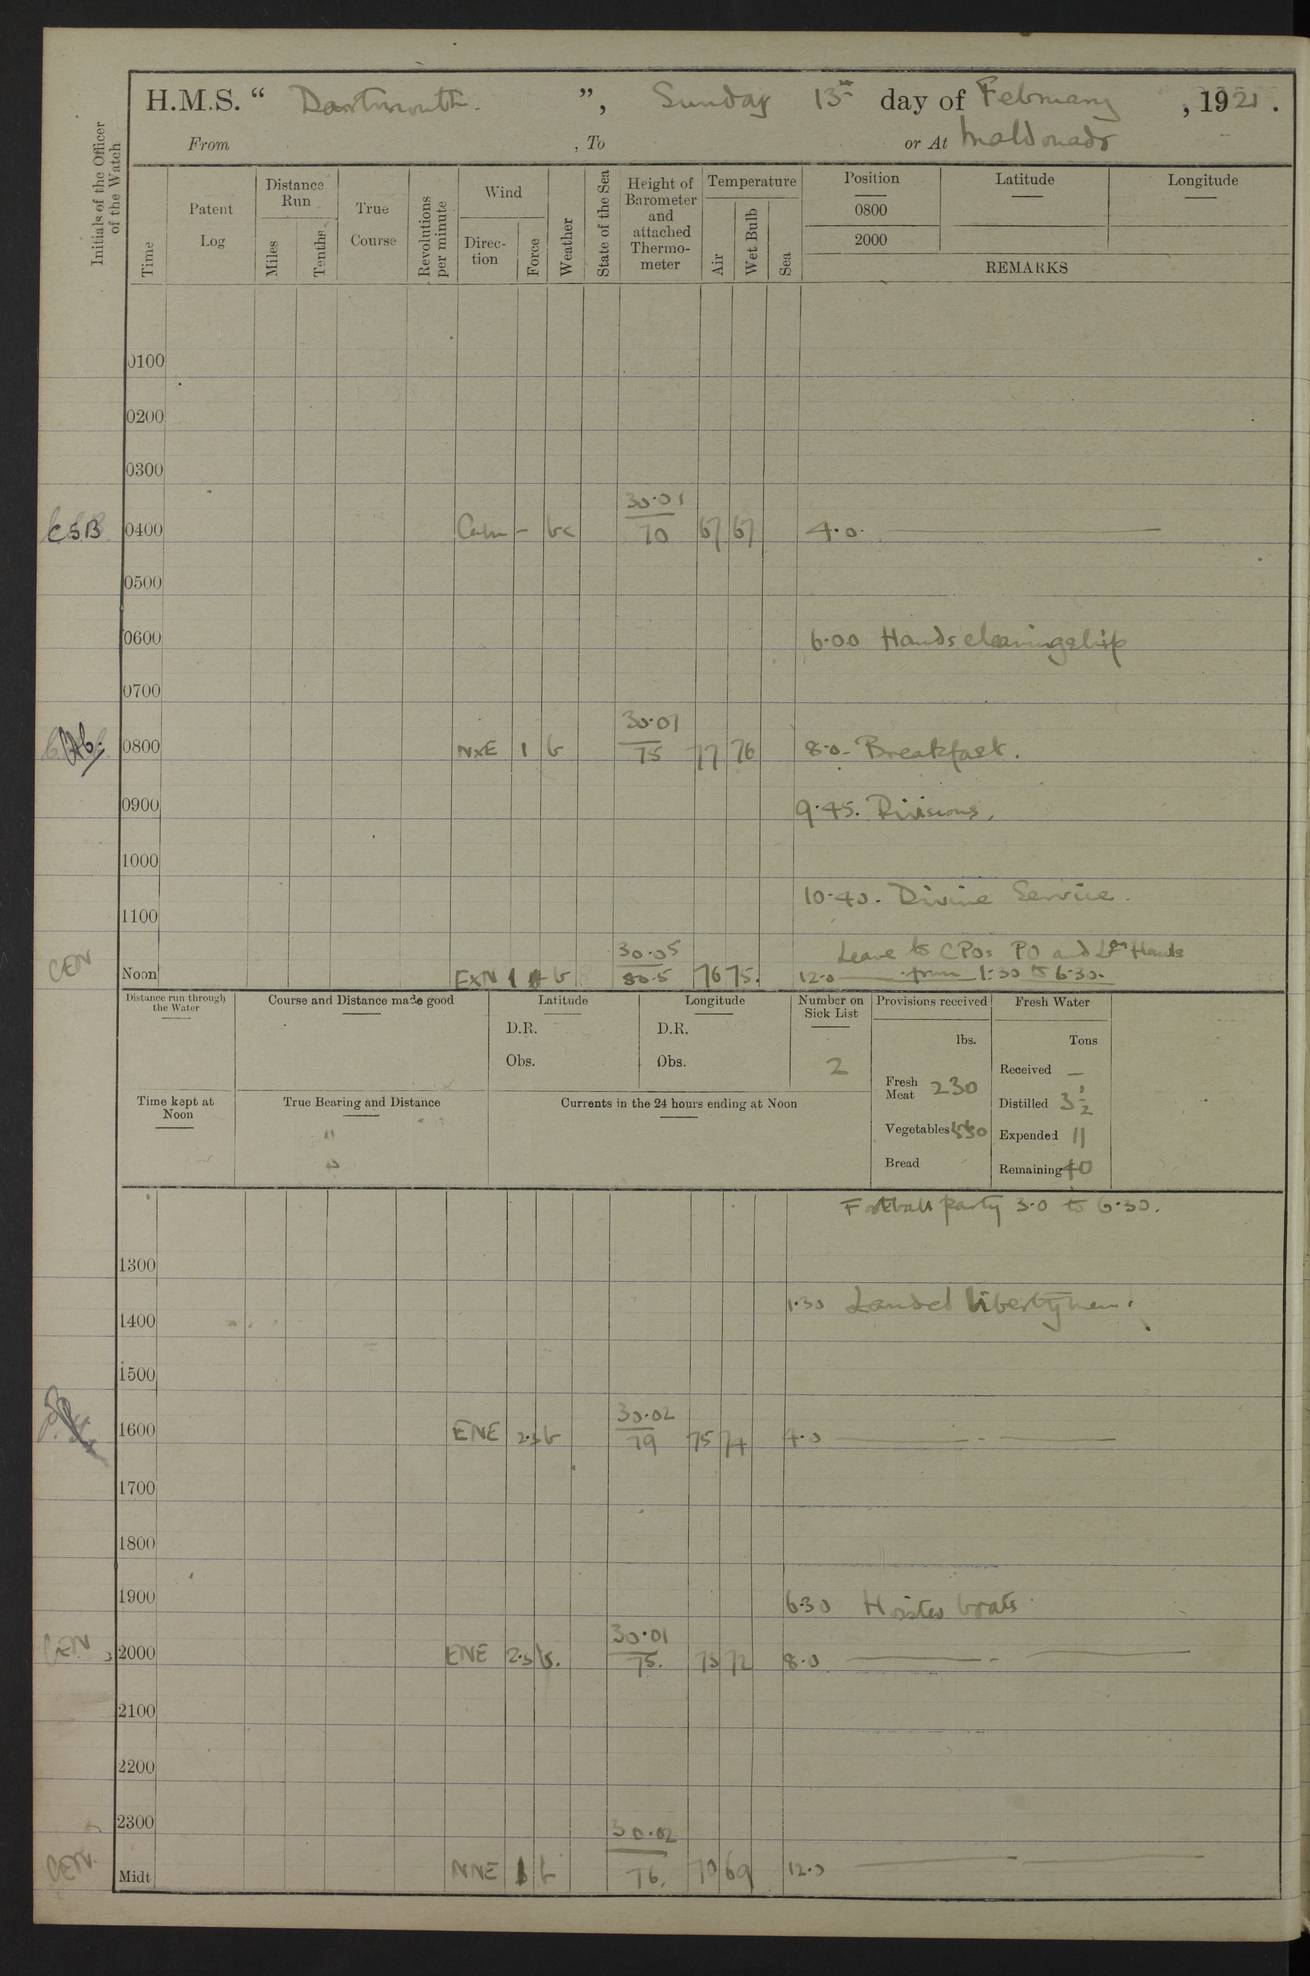 H.M.S. “ Dartmouth. ”, Sunday 13th day of February , 1921 .
From , To or At Maldonado
Initials of the Officer of the Watch
Time
Patent Log
Distance Run
Miles
Tenths
True Course
Revolutions per minute
Wind
Direc-tion
Force
Weather
State of the Sea
Height of Barometer and attached Thermo-meter
Temperature
Air
Wet Bulb
Sea
Position
0800
2000
Latitude
Longitude
REMARKS
0100
0200
0300
CSB 0400 Calm - bc 30.01 70 67 67 4.0.
0500
0600 6.00 Hands cleaning ship
0700
0800 NxE 1 b 30.01 75 77 76 8.0. Breakfast.
0900 9.45. Divisions.
1000
10.40. Divine Service.
1100
Leave to CPOs PO and Hands
CEN Noon ExN 1 b 30.05 80.5 76 75. 12.0 from 1.30 to 6.30.
Distance run through the Water
Course and Distance made good
Latitude
D.R.
Obs.
Longitude
D.R.
Obs.
Number on Sick List
2
Provisions received
lbs.
Fresh Meat 230
Vegetables
Bread
Fresh Water
Tons
Received —
Distilled 3½
Expended 11
Remaining 40
Time kept at Noon
True Bearing and Distance
Currents in the 24 hours ending at Noon
Football party 3.0 to 6.30.
1300
1.30 Landed libertymen.
1400
1500
1600 ENE 2.3 b 30.02 79 75 74 4.0
1700
1800
1900 6.30 Hoisted boats
CEN 2000 ENE 2.3 b. 30.01 75. 73 72 8.0
2100
2200
2300
CEN. Midt NNE 1 b 30.02 76. 70 69 12.0